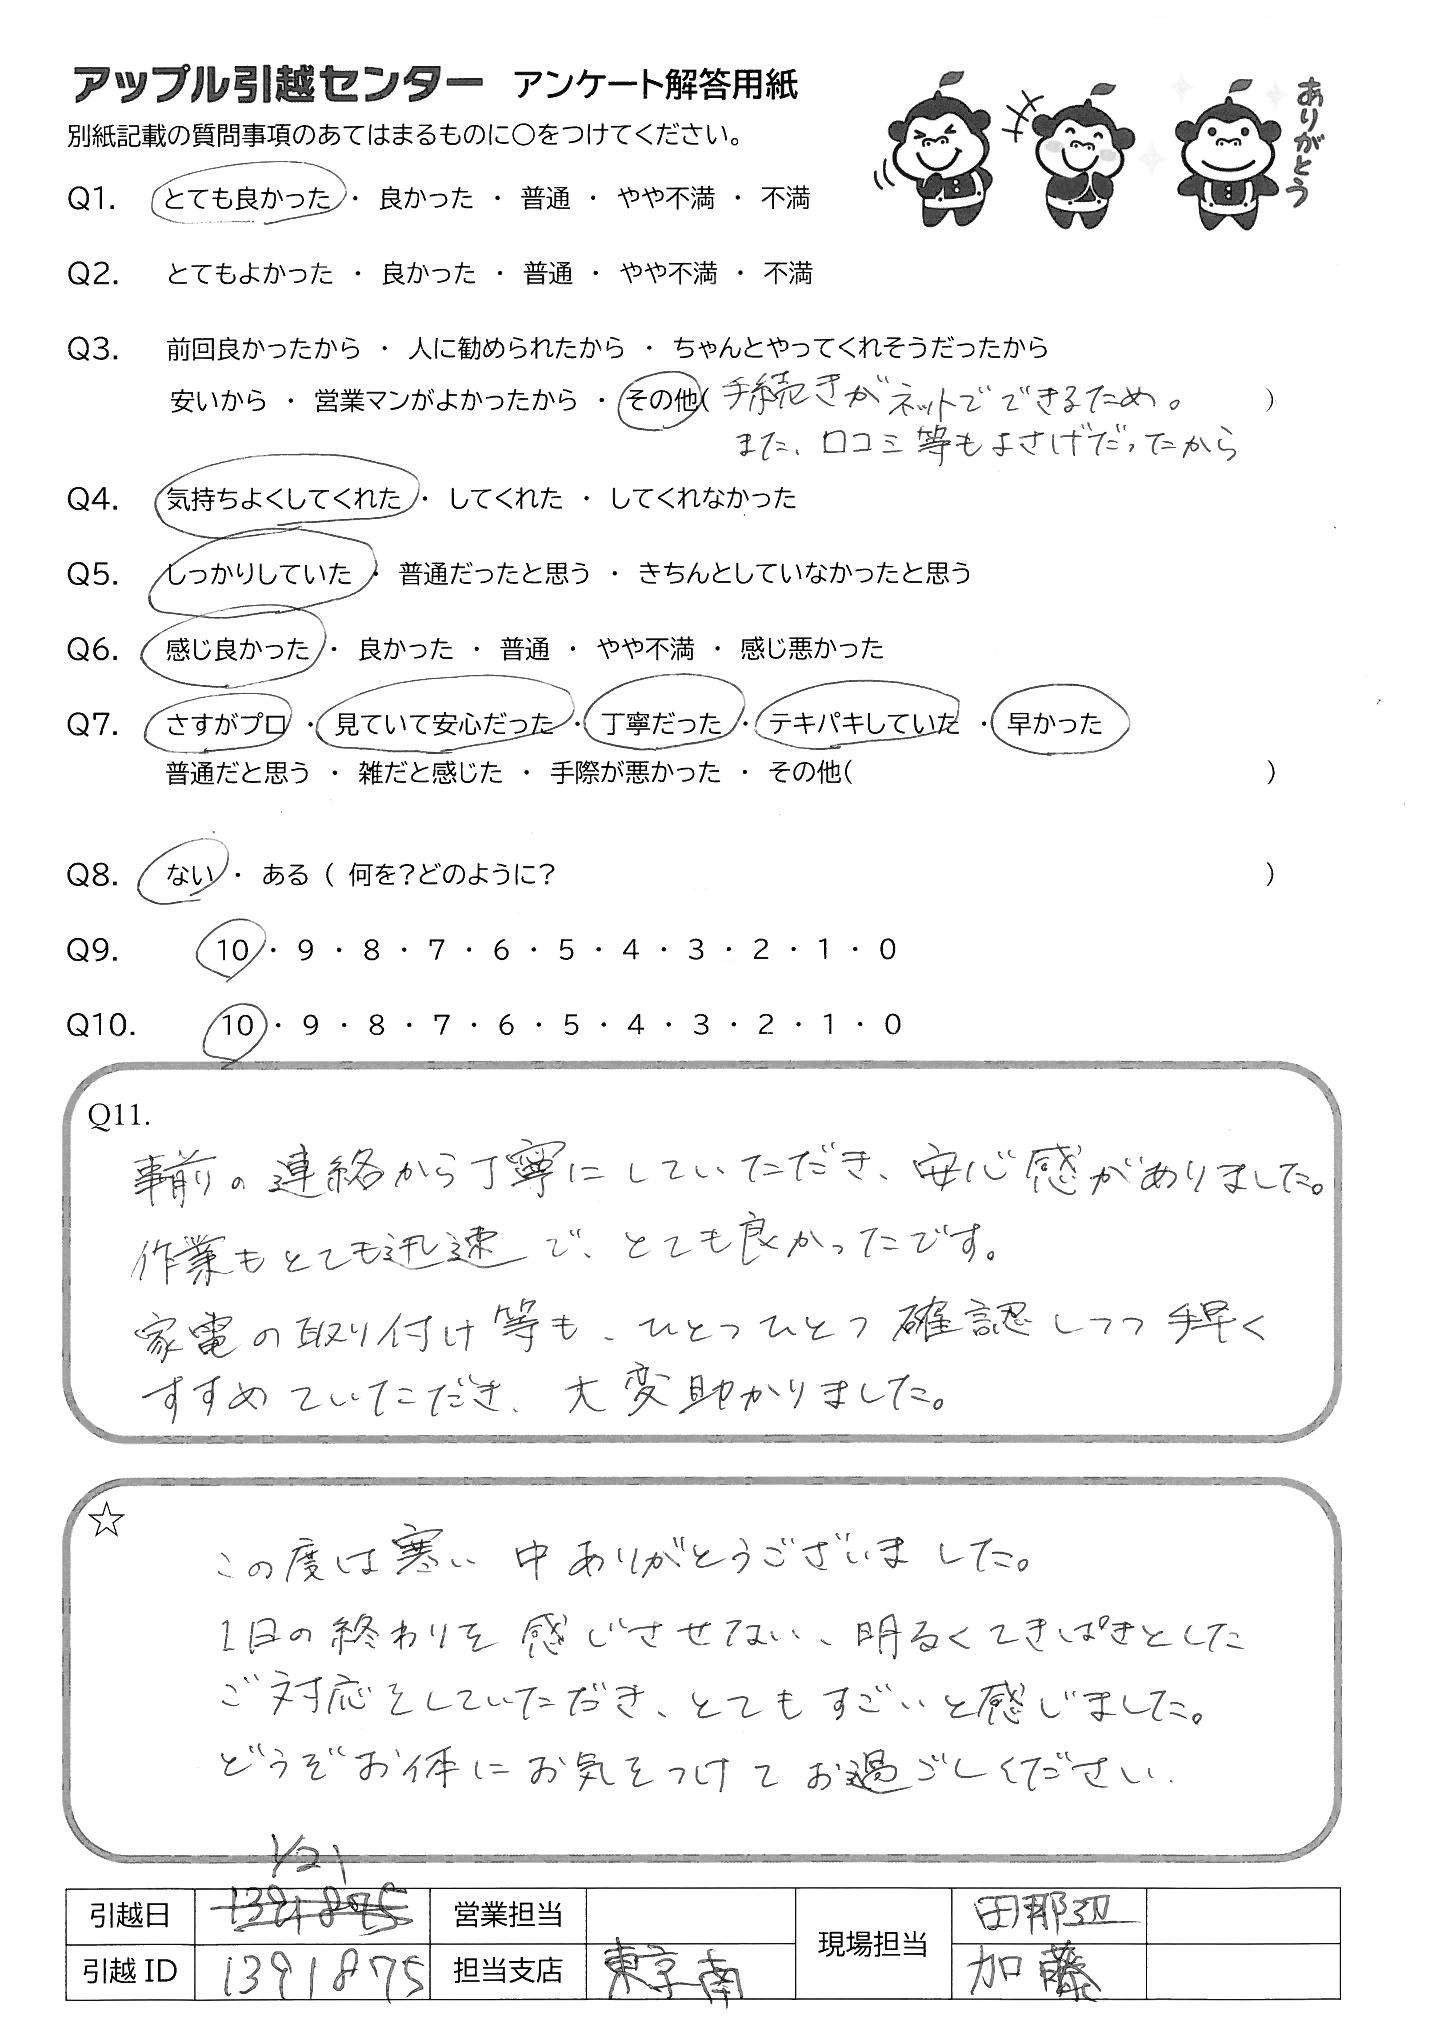 アップル引越センター アンケート解答用紙
ありがとう
別紙記載の質問事項のあてはまるものに〇をつけてください。
Q1. とても良かった ・ 良かった ・ 普通 ・ やや不満 ・ 不満
Q2. とてもよかった ・ 良かった ・ 普通 ・ やや不満 ・ 不満
Q3. 前回良かったから ・ 人に勧められたから ・ ちゃんとやってくれそうだったから
安いから ・ 営業マンがよかったから ・ その他( 手続きがネットでできるため。 )
また、口コミ等もよさげだったから
Q4. 気持ちよくしてくれた ・ してくれた ・ してくれなかった
Q5. しっかりしていた ・ 普通だったと思う ・ きちんとしていなかったと思う
Q6. 感じ良かった ・ 良かった ・ 普通 ・ やや不満 ・ 感じ悪かった
Q7. さすがプロ ・ 見ていて安心だった ・ 丁寧だった ・ テキパキしていた ・ 早かった
普通だと思う ・ 雑だと感じた ・ 手際が悪かった ・ その他( )
Q8. ない ・ ある ( 何を?どのように? )
Q9. 10 ・ 9 ・ 8 ・ 7 ・ 6 ・ 5 ・ 4 ・ 3 ・ 2 ・ 1 ・ 0
Q10. 10 ・ 9 ・ 8 ・ 7 ・ 6 ・ 5 ・ 4 ・ 3 ・ 2 ・ 1 ・ 0
Q11.
事前の連絡から丁寧にしていただき、安心感がありました。
作業もとても迅速で、とても良かったです。
家電の取り付け等も、ひとつひとつ確認しつつ手早く
すすめていただき、大変助かりました。
☆
この度は寒い中ありがとうございました。
1日の終わりを感じさせない、明るくてきぱきとした
ご対応をしていただき、とてもすごいと感じました。
どうぞお体にお気をつけてお過ごしください.
1/21
引越日 1391875 営業担当 現場担当 田那辺
引越ID 1391875 担当支店 東京南 加藤